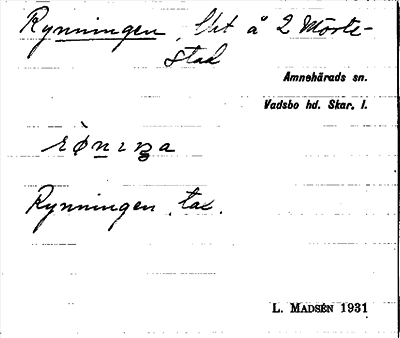 Rynningen, lht å 2 Mörte-
stad
Amnehärads sn.
Vadsbo hd. Skar. l.
Rynningen tax.
L. MADSÉN 1931